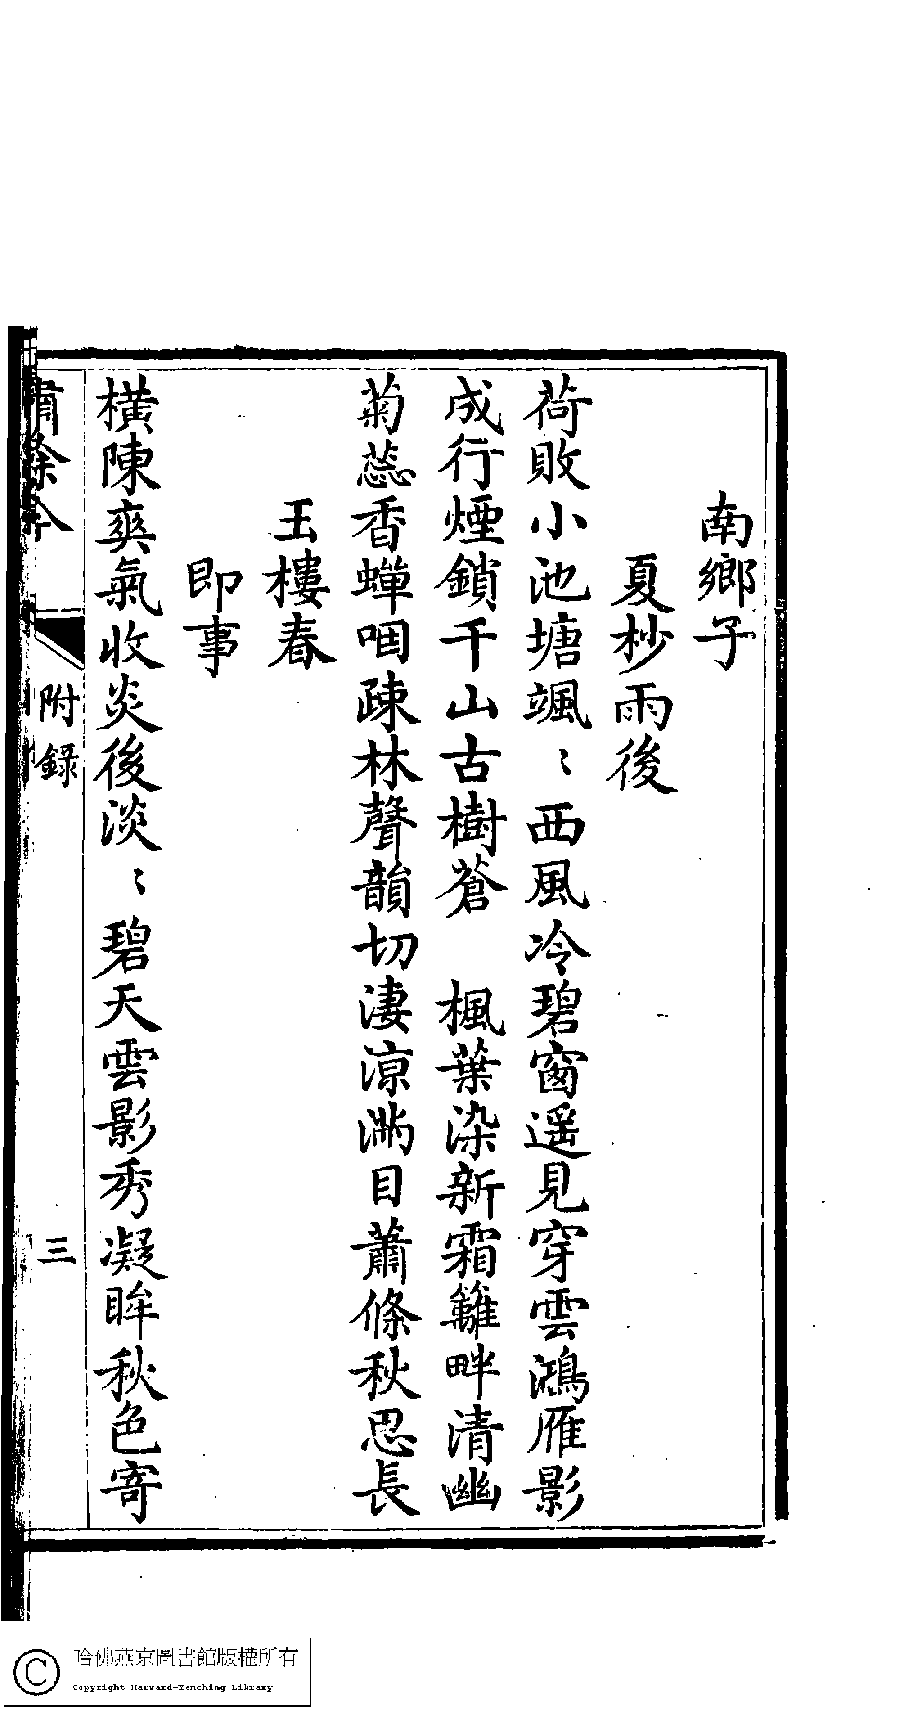 南鄉子
夏杪雨後
荷敗小池塘颯〻西風冷碧窗遥見穿雲鴻雁影
成行煙鎖千山古樹蒼　楓葉染新霜籬畔清幽
菊蕊香蟬咽疎林聲韻切淒涼滿目蕭條秋思長
玉樓春
即事
橫陳爽氣收炎後淡〻碧天雲影秀凝眸秋色寄
附錄
三
哈佛燕京圖書館版權所有
Copyright Harvard-Yenching Library